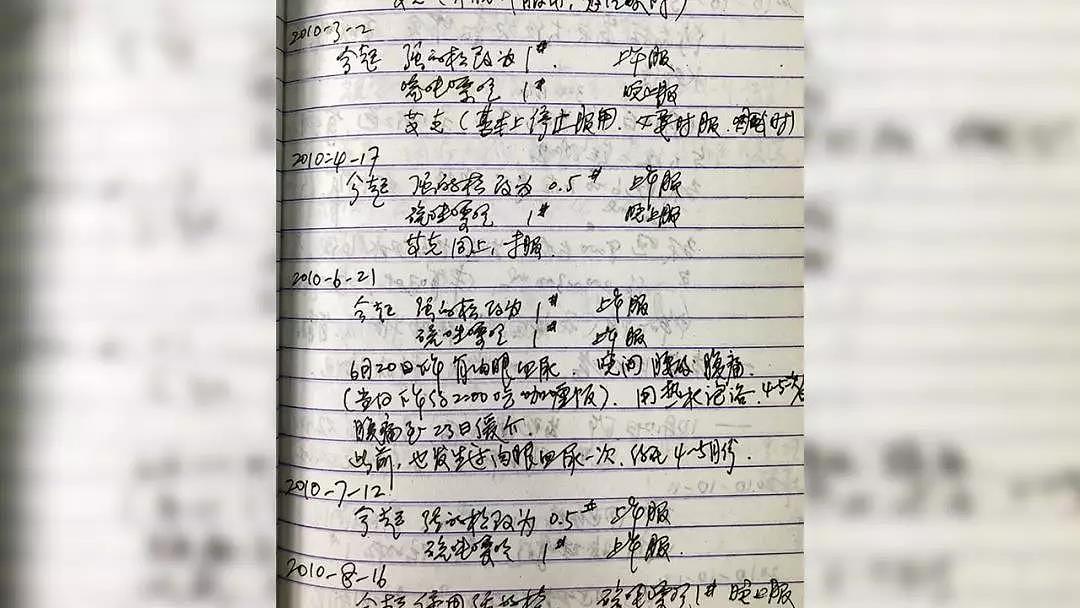 2010-3-2
今起 强的松改为 1# 上午服
硫唑嘌呤 1# 晚上服
艾克(基本上停止服用.必要时服.时)
2010-4-17
今起 强的松改为 0.5# 上午服
硫唑嘌呤 1# 晚上服
艾克同上,未服.
2010-6-21
今起 强的松改为 1# 上午服
硫唑嘌呤 1# 上午服
6月20日下午有肉眼血尿.晚间腰酸腹痛.
(当日下午约2:00吃咖喱饭).用热水泡浴.4-5次
腹痛至23日缓介.
此前,也发生过肉眼血尿一次.约在4-5月份.
2010-7-12
今起 强的松改为 0.5# 上午服
硫唑嘌呤 1# 上午服.
2010-8-16
今起停用强的松 硫唑嘌呤1# 晚上服